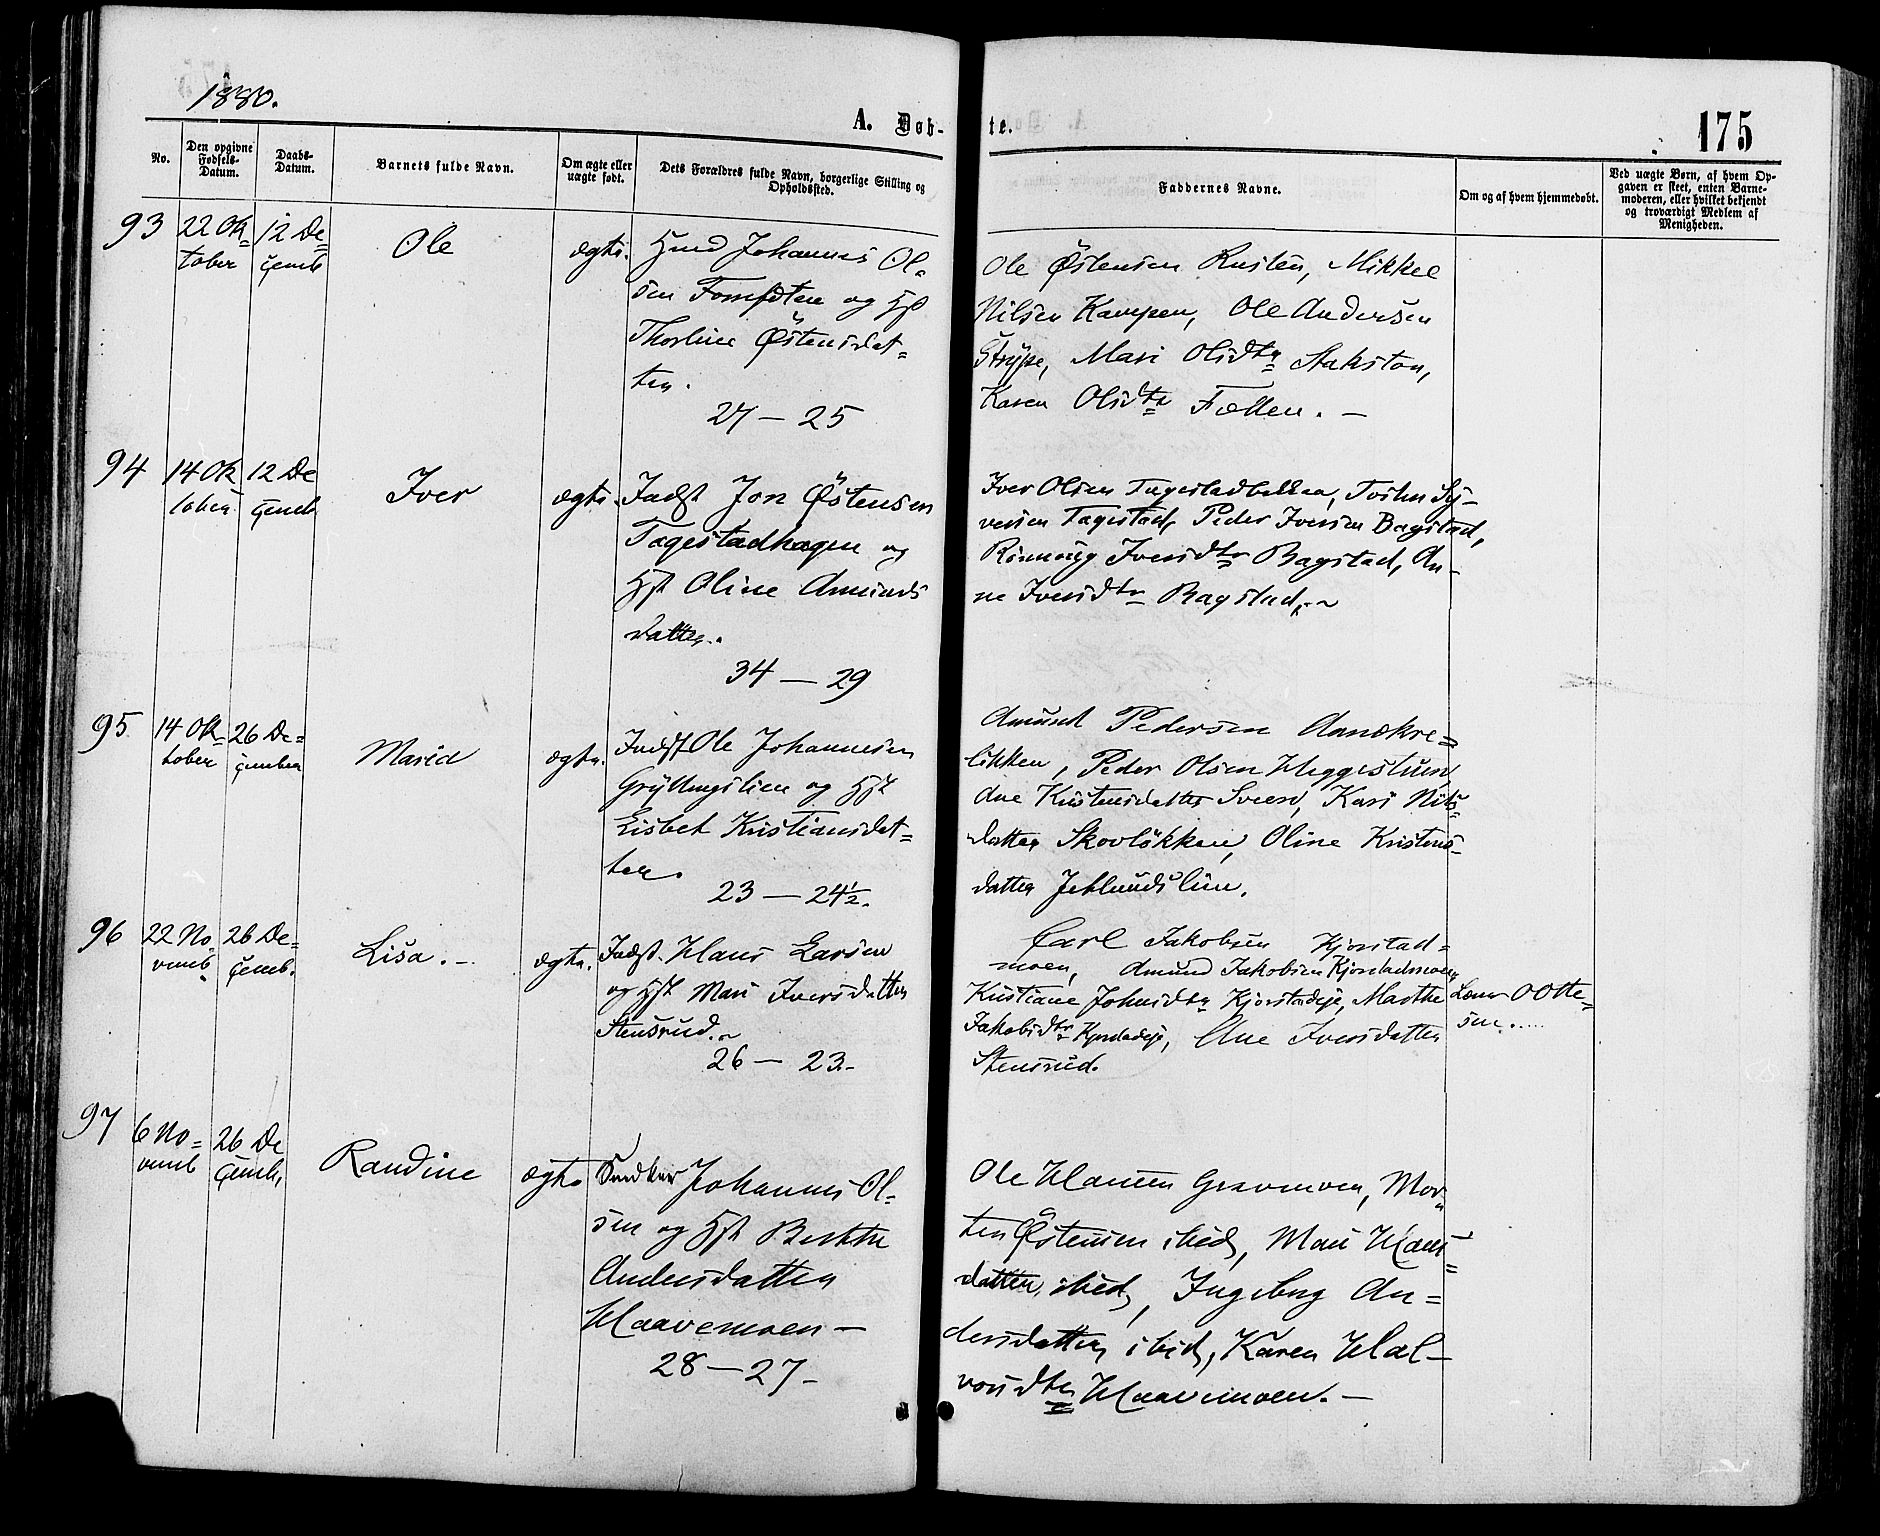 1880.
A. Døb-
te.
175
No.
Den opgivne
Fødsels-
Datum.
Daabs-
Datum.
Barnets fulde Navn.
Om ægte eller
uægte født.
Dets Forældres fulde Navn, borgerlige Stilling og
Opholdssted.
Faddernes Navne.
Om og af hvem hjemmedøbt.
Ved uægte Børn, af hvem Op-
gaven er skeet, enten Barne-
moderen, eller hvilket bekjendt
og troværdigt Medlem af
Menigheden.
93
22 Ok-
tober
12 De-
çemb
Ole
ægte.
Hmd Johannes Ol-
sen og Hst
Thorline Østensdat-
ter.
27 — 25
Ole Østensen Rusten, Mikkel
Nilsen Kampen, Ole Andersen
Strype, Mari Olsdtr Stakston,
Karen Olsdtr . —
94
14 Ok
tober
12 De
çemb
Iver
ægte.
Indst Jon Østensen
Tagestadhagen og
Hst Oline Amunds
datter.
34 — 29
Iver Olsen Tagestadbakken, Sy-
versen Tagestad, Peder Iversen Bagstad,
Rønnaug Iversdtr Bagstad, An-
ne Iversdtr Bagstad.
95.
14 Ok-
tober
26 De-
çember
Marid
ægte.
Indst Ole Johannesen
Gryttingslien og Hst
Lisbet Kristiansdat-
ter.
23 — 24½.
Amund Pedersen
, Peder Olsen Heggeslund
Ane Kristensdatter Sveen, Kari Nils-
datter Skovløkken, Oline Kristens-
datter .
96
22 No-
vemb
26 De-
çemb.
Lisa. -
ægte.
Indst. Hans Larsen
og Hst Mari Iversdatter
Stensrud.
26 — 23.-
Carl Jakobsen Kjorstad-
moen, Amund Jakobsen Kjorstadmoen,
Kristiane Johnsdtr Kjorstadeje, Marthe
Jakobsdtr Kjorstadeje, Ane Iversdatter
Stensrud.
Lærer O Otte-
sen.....
97
6 No-
vemb
26 De
çemb,
Randine
ægte
Johannes Ol-
sen og Hst Berthe
Andersdatter
Haavemoen —
28 — 27 -
Ole Hansen Gravemoen, Mor-
ten Østensen ibid, Mari Hans-
datter, ibid, Ingeborg An-
dersdatter ibid, Karen Hal-
vorsdtr Haavemoen. —